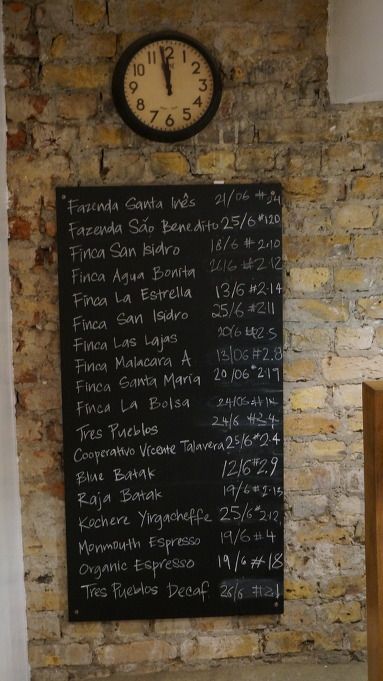 12
1
2
3
4
5
6
7
8
9
10
11
Fazenda Santa Inês 21/06 #24
Fazenda São Benedito 25/6 #120
Finca San Isidro 18/6 #2.10
Finca Agua Bonita #2.12
Finca La Estrella 13/6 #2.14
Finca San Isidro 25/6 #211
Finca Las Lajas 20/6 #2.5
Finca Malacara A 13/06 #2.8
Finca Santa María 20/06 #219
Finca La Bolsa
Tres Pueblos 24/6 #3.4
Cooperativo Vicente Talavera 25/6 #2.4
Blue Batak 12/6 #2.9
Raja Batak 19/6 #2.13
Kochere Yirgacheffe 25/6 #2.12
Monmouth Espresso 19/6 #4
Organic Espresso 19/6 #18
Tres Pueblos Decaf 26/6